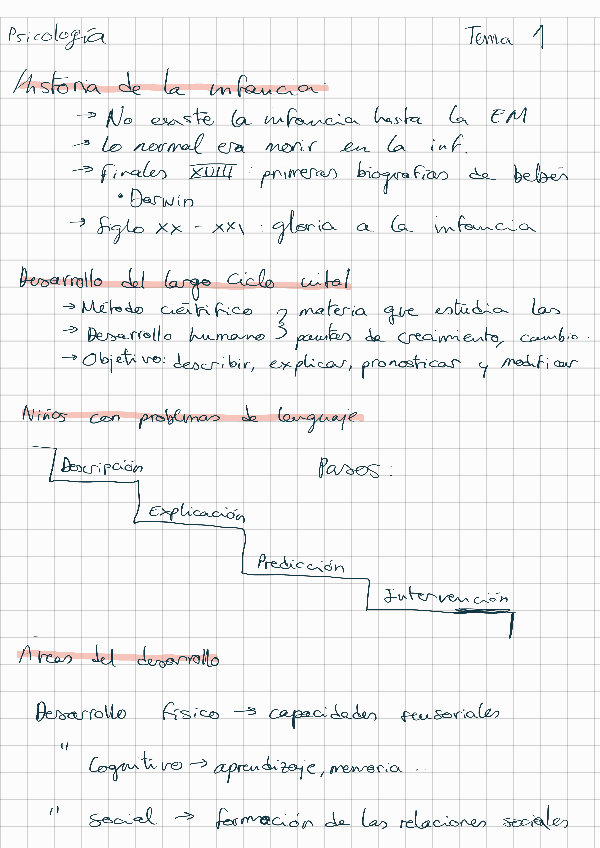 Psicología Tema 1
História de la infancia
→ No existe la infancia hasta la EM
→ Lo normal era morir en la inf.
→ Finales XVIII: primeras biografías de bebés
• Darwin
→ Siglo XX - XXI: gloria a la infancia
Desarrollo del largo ciclo vital
→ Método científico } materia que estudia las
→ Desarrollo humano } pautas de creamiento, cambio.
→ Objetivo: describir, explicar, pronosticar y modificar
Niños con problemas de lenguaje
Descripción Pasos:
Explicación
Predicción
Intervención
Areas del desarrollo
Desarrollo físico → capacidades sensoriales
" Cognitivo → aprendizaje, memoria..
" social → formación de las relaciones sociales